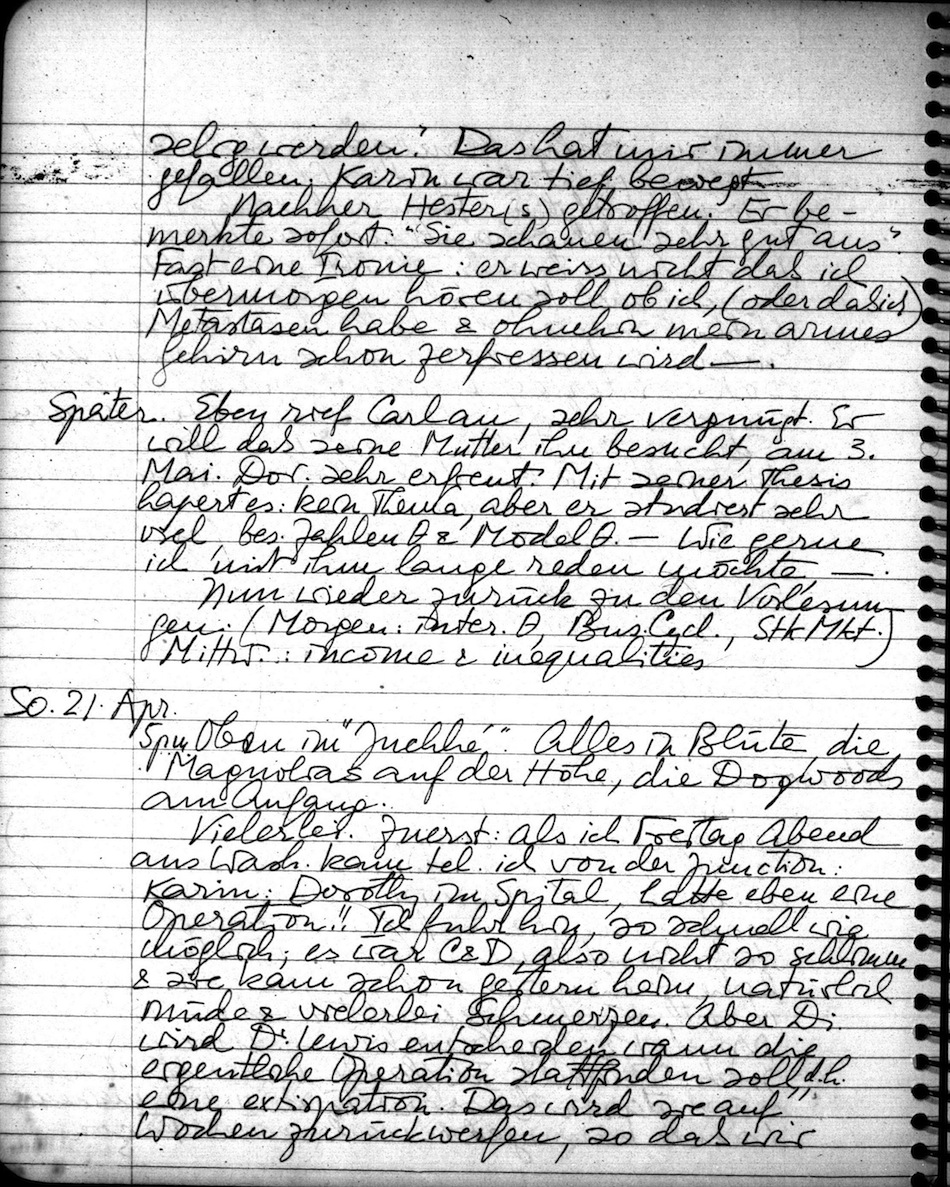 selig werden". Das hat mir immer
gefallen. Karin war tief bewegt
Nachher Hester(s) getroffen. Er be-
merkte sofort: "Sie schauen sehr gut aus"
Fast eine Ironie: er weiss nicht das ich
übermorgen hören soll ob ich, (oder das ich)
Metastasen habe & ohnehin mein armes
Gehirn schon zerfressen wird —.
Später. Eben rief Carl an, sehr vergnügt. Er
will das seine Mutter ihn besucht, am 3.
Mai. Dor. sehr erfreut. Mit seiner Thesis
hapert es: kein Thema, aber er studiert sehr
viel, bes. Zahlen θ & Model θ. — Wie gerne
ich mit ihm lange reden möchte, —.
Nun wieder zurück zu den Vorlesun-
gen. (Morgen: inter. θ, Bus. Cycl., Stk Mkt.)
Mittw.: income & inequalities
So. 21. Apr.
5pm Oben im "Juchhé". Alles in Blüte, die
Magnolias auf der Höhe, die Dogwoods
am Anfang.
Vielerlei. Zuerst: als ich Freitag Abend
aus Wash. kam tel. ich von der Junction:
Karin: Dorothy im Spital, hatte eben eine
Operation!! Ich fuhr hin, so schnell wie
möglich; es war C&D, also nicht so schlimm
& sie kam schon gestern heim, natürlich
müde & vielerlei Schmerzen. Aber Di.
wird Dr. Lewis entscheiden wann die
eigentliche Operation stattfinden soll, d.h.
eine extirpation. Das wird sie auf
Wochen zurückwerfen, so das wir